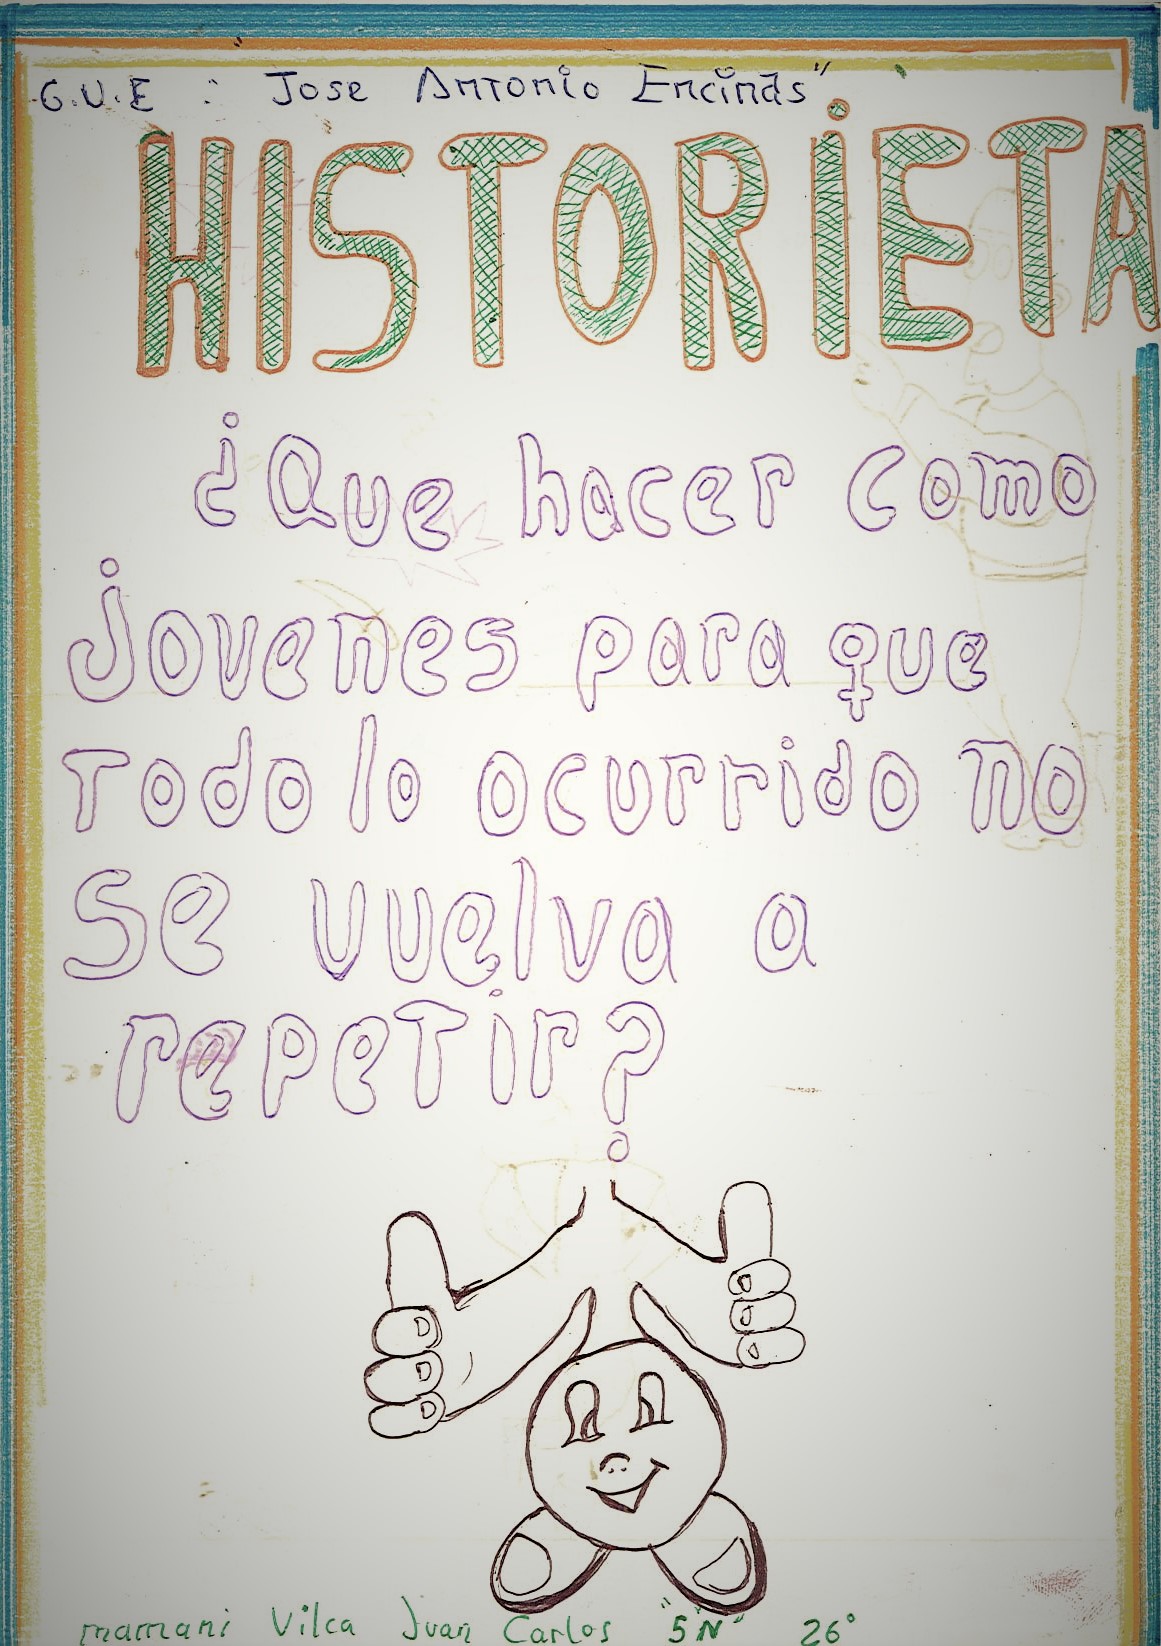 G.U.E : Jose Antonio Encinas"
HISTORIETA
¿Que hacer como
jovenes para que
todo lo ocurrido no
se vuelva a
repetir?
mamani Vilca Juan Carlos "5"N" 26°